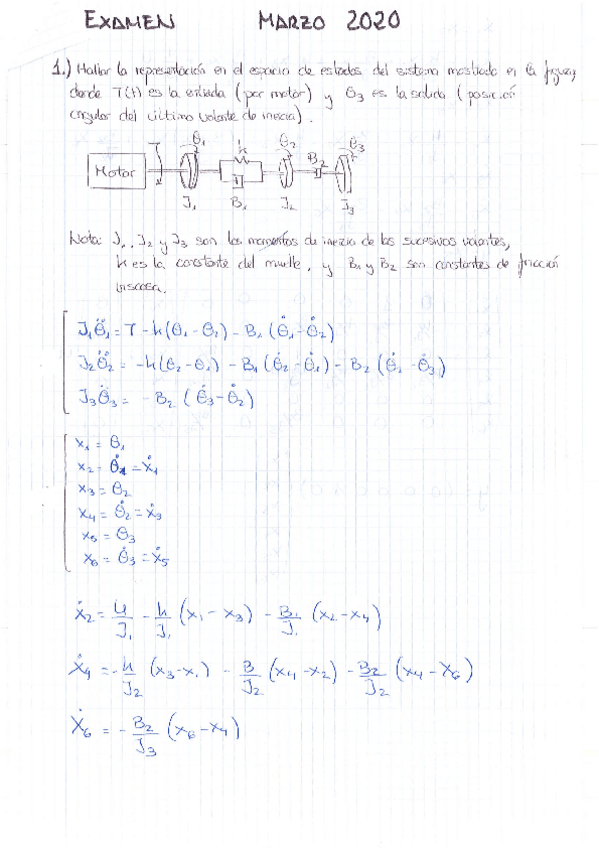 EXAMEN MARZO 2020
1.) Hallar la representación en el espacio de estados del sistema mostrado en la figura,
donde T(t) es la entrada (par motor) y θ3 es la salida (posición
angular del último volante de inercia).
θ1 k θ2 B2 θ3
Motor
J1 B1 J2 J3
Nota: J1, J2 y J3 son los momentos de inercia de los sucesivos volantes,
k es la constante del muelle, y B1 y B2 son constantes de fricción
viscosa.
J1θ̈1 = T - k(θ1 - θ2) - B1(θ̇1 - θ̇2)
J2θ̈2 = -k(θ2 - θ1) - B1(θ̇2 - θ̇1) - B2(θ̇2 - θ̇3)
J3θ̈3 = -B2(θ̇3 - θ̇2)
x1 = θ1
x2 = θ̇1 = ẋ1
x3 = θ2
x4 = θ̇2 = ẋ3
x5 = θ3
x6 = θ̇3 = ẋ5
ẋ2 = u/J1 - k/J1 (x1 - x3) - B1/J1 (x2 - x4)
ẋ4 = -k/J2 (x3 - x1) - B/J2 (x4 - x2) - B2/J2 (x4 - x6)
ẋ6 = -B2/J3 (x6 - x4)